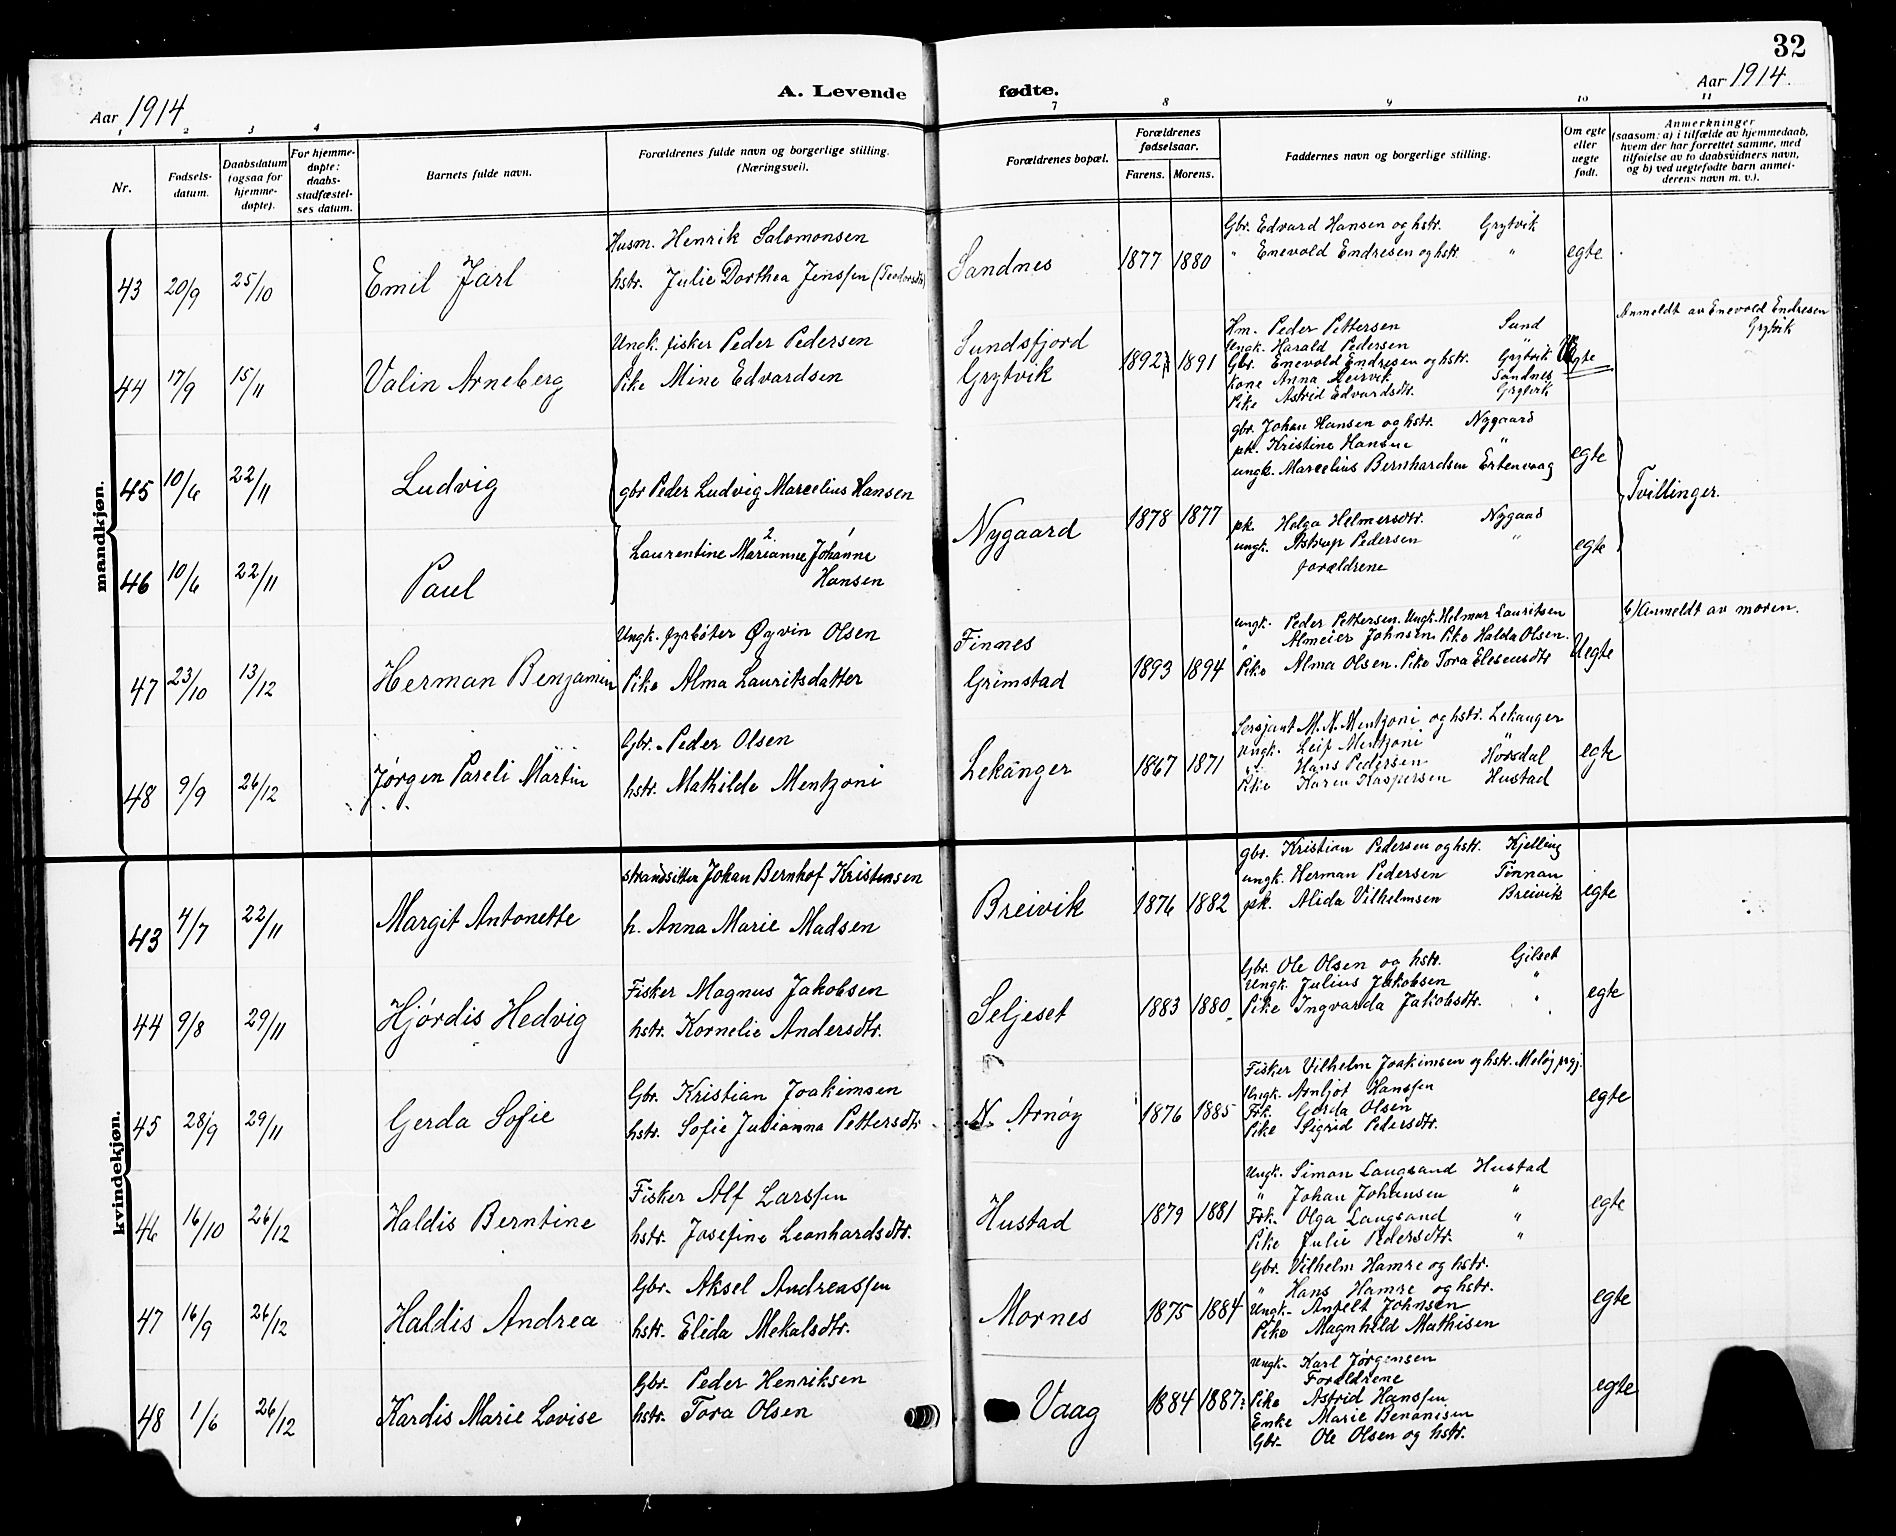 32
Aar 1914
A. Levende fødte.
Aar 1914.
1 2 3 4 7 8 9 10 11
Nr.
Fødsels-
datum.
Daabsdatum
(ogsaa for
hjemme-
døpte).
For hjemme-
døpte:
daabs-
stadfæstel-
ses datum.
Barnets fulde navn.
Forældrenes fulde navn og borgerlige stilling.
(Næringsvei).
Forældrenes bopæl.
Forældrenes
fødselsaar.
Farens. Morens.
Faddernes navn og borgerlige stilling.
Om egte
eller
uegte
født.
Anmerkninger
(saasom: a) i tilfælde av hjemmedaab,
hvem der har forrettet samme, med
tilføielse av to daabsvidners navn,
og b) ved uegtefødte barn anmel-
derens navn m. v.).
mandkjøn.
43 20/9 25/10 Emil Jarl
Husm. Henrik Salomonsen
hstr. Julie Dorthea Jenssen (Teodorsdtr)
Sandnes 1877 1880
Gbr. Edvard Hansen og hstr. Grytvik
" Enevold Endresen og hstr. "
egte
44 17/9 15/11 Valin Arneberg
Ungk. fisker Peder Pedersen
Pike Mine Edvardsen
Sundsfjord
Grytvik
1892 1891
Hm. Peder Pettersen Sund
Ungk. Harald Pedersen "
Gbr. Enevold Endresen og hstr. Grytvik
Kone Anna Leirvik Sandnes
Pike Astrid Edvardsdtr. Grytvik
Uegte
Anmeldt av Enevold Endresen
Grytvik
45 10/6 22/11 Ludvig
gbr Peder Ludvig Marcelius Hansen
Nygaard 1878 1877
gbr. Johan Hansen og hstr. Nygaard
pk. Kristine Hansen "
ungk. Marcelius Bernhardsen Ertenvaag
egte
Tvillinger.
46 10/6 22/11 Paul
Laurentine Marianne 2 Johanne 1
Hansen
pk. Helga Helmersdtr. Nygaad
ungk. Astrup Pedersen "
forældrene
egte
47 23/10 13/12 Herman Benjamin
Ungk. fyrbøter Øyvin Olsen
Pike Alma Lauritsdatter
Finnes
Grimstad
1893 1894
ungk. Peder Pettersen. Ungk. Helmar Lauritsen
" Almeier Johnsen. Pike Halda Olsen.
Pike Alma Olsen. Pike Tora Elesensdtr
Uegte
b) Anmeldt av moren.
48 9/9 26/12 Jørgen Pareli Martin
Gbr. Peder Olsen
hstr. Mathilde Mentzoni
Lekanger 1867 1871
Sersjant M. N. Mentzoni og hstr. Lekanger
Ungk. Leif Mentzoni "
" Hans Pedersen Horsdal
Pike Karen Kaspersen Hustad
egte
kvindekjøn.
43 4/7 22/11 Margit Antonette
strandsitter Johan Bernhof Kristensen
h. Anna Marie Madsen
Breivik 1876 1882
gbr. Kristian Pedersen og hstr. Kjelling
ungk. Herman Pedersen Finnan
pk. Alida Vilhelmsen Breivik
egte
44 9/8 29/11 Hjørdis Hedvig
Fisker Magnus Jakobsen
hstr. Kornelie Andersdtr.
Seljeset 1883 1880
Gbr. Ole Olsen og hstr. Gilset
Ungk. Julius Jakobsen "
Pike Ingvarda Jakobsdtr. "
egte
45 28/9 29/11 Gerda Sofie
Gbr. Kristian Joakimsen
hstr. Sofie Julianna Pettersdtr
N. Arnøy 1876 1885
Fisker Vilhelm Joakimsen og hstr. Meløy prgj.
Ungk. Arnljot Hanssen
Frk. Gerda Olsen
Pike Sigrid Pedersdtr.
egte
46 16/10 26/12 Haldis Berntine
Fisker Alf Larssen
hstr. Josefine Leonhardsdtr.
Hustad 1879 1881
Ungk. Simon Langsand Hustad
" Johan Johansen "
Frk. Olga Langsand "
Pike Julie Pedersdtr. "
egte
47 16/9 26/12 Haldis Andrea
Gbr. Aksel Andreassen
hstr. Elida Mekalsdtr.
Mornes 1875 1884
Gbr. Vilhelm Hamre og hstr.
" Hans Hamre og hstr.
Ungk. Anfelt Johnsen
Pike Magnhild Mathisen
egte
48 1/6 26/12 Kardis Marie Lovise
Gbr. Peder Henriksen
hstr. Tora Olsen
Vaag 1884 1887
Ungk. Karl Jørgensen
Forældrene
Pike Astrid Hanssen
Enke Marie Benonisen
Gbr. Ole Olsen og hstr.
egte